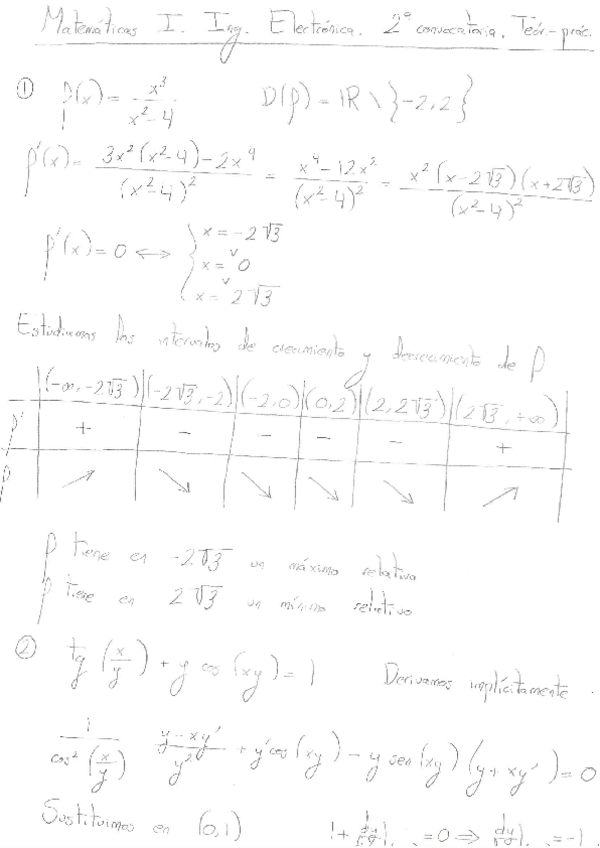 Matemáticas I. Ing. Electrónica. 2ª convocatoria. Teór.-prác.
① f(x) = x³/(x²-4) D(f) = IR \ {-2, 2}
f'(x) = (3x²(x²-4) - 2x⁴)/(x²-4)² = (x⁴-12x²)/(x²-4)² = x²(x-2√3)(x+2√3)/(x²-4)²
f'(x) = 0 ⟺ { x = -2√3
∨
x = 0
∨
x = 2√3
Estudiamos los intervalos de crecimiento y decrecimiento de f
(-∞, -2√3) | (-2√3, -2) | (-2, 0) | (0, 2) | (2, 2√3) | (2√3, +∞)
f' | + | - | - | - | - | +
f | ↗ | ↘ | ↘ | ↘ | ↘ | ↗
f tiene en -2√3 un máximo relativo
f tiene en 2√3 un mínimo relativo
② tg (x/y) + y cos (xy) = 1 Derivamos implícitamente.
1/cos²(x/y) (y-xy')/y² + y' cos (xy) - y sen (xy) (y + xy') = 0
Sustituimos en (0, 1) 1 + dy/dx = 0 ⇒ dy/dx = -1